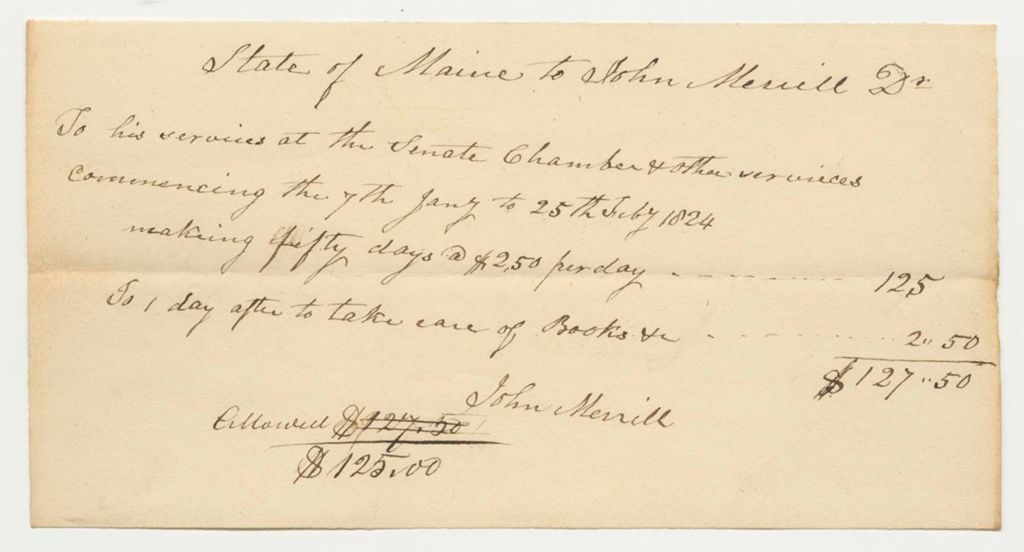 State of Maine to John Merrill Dr
To his services at the Senate Chamber & other services
commencing the 7th Jany to 25th Feby 1824
making fifty days @ $2,50 per day - - - - - - - - 125
To 1 day after to take care of Books &c - - - - - - - 2" 50
$127"50
John Merrill
Allowed $127.50
$125.00